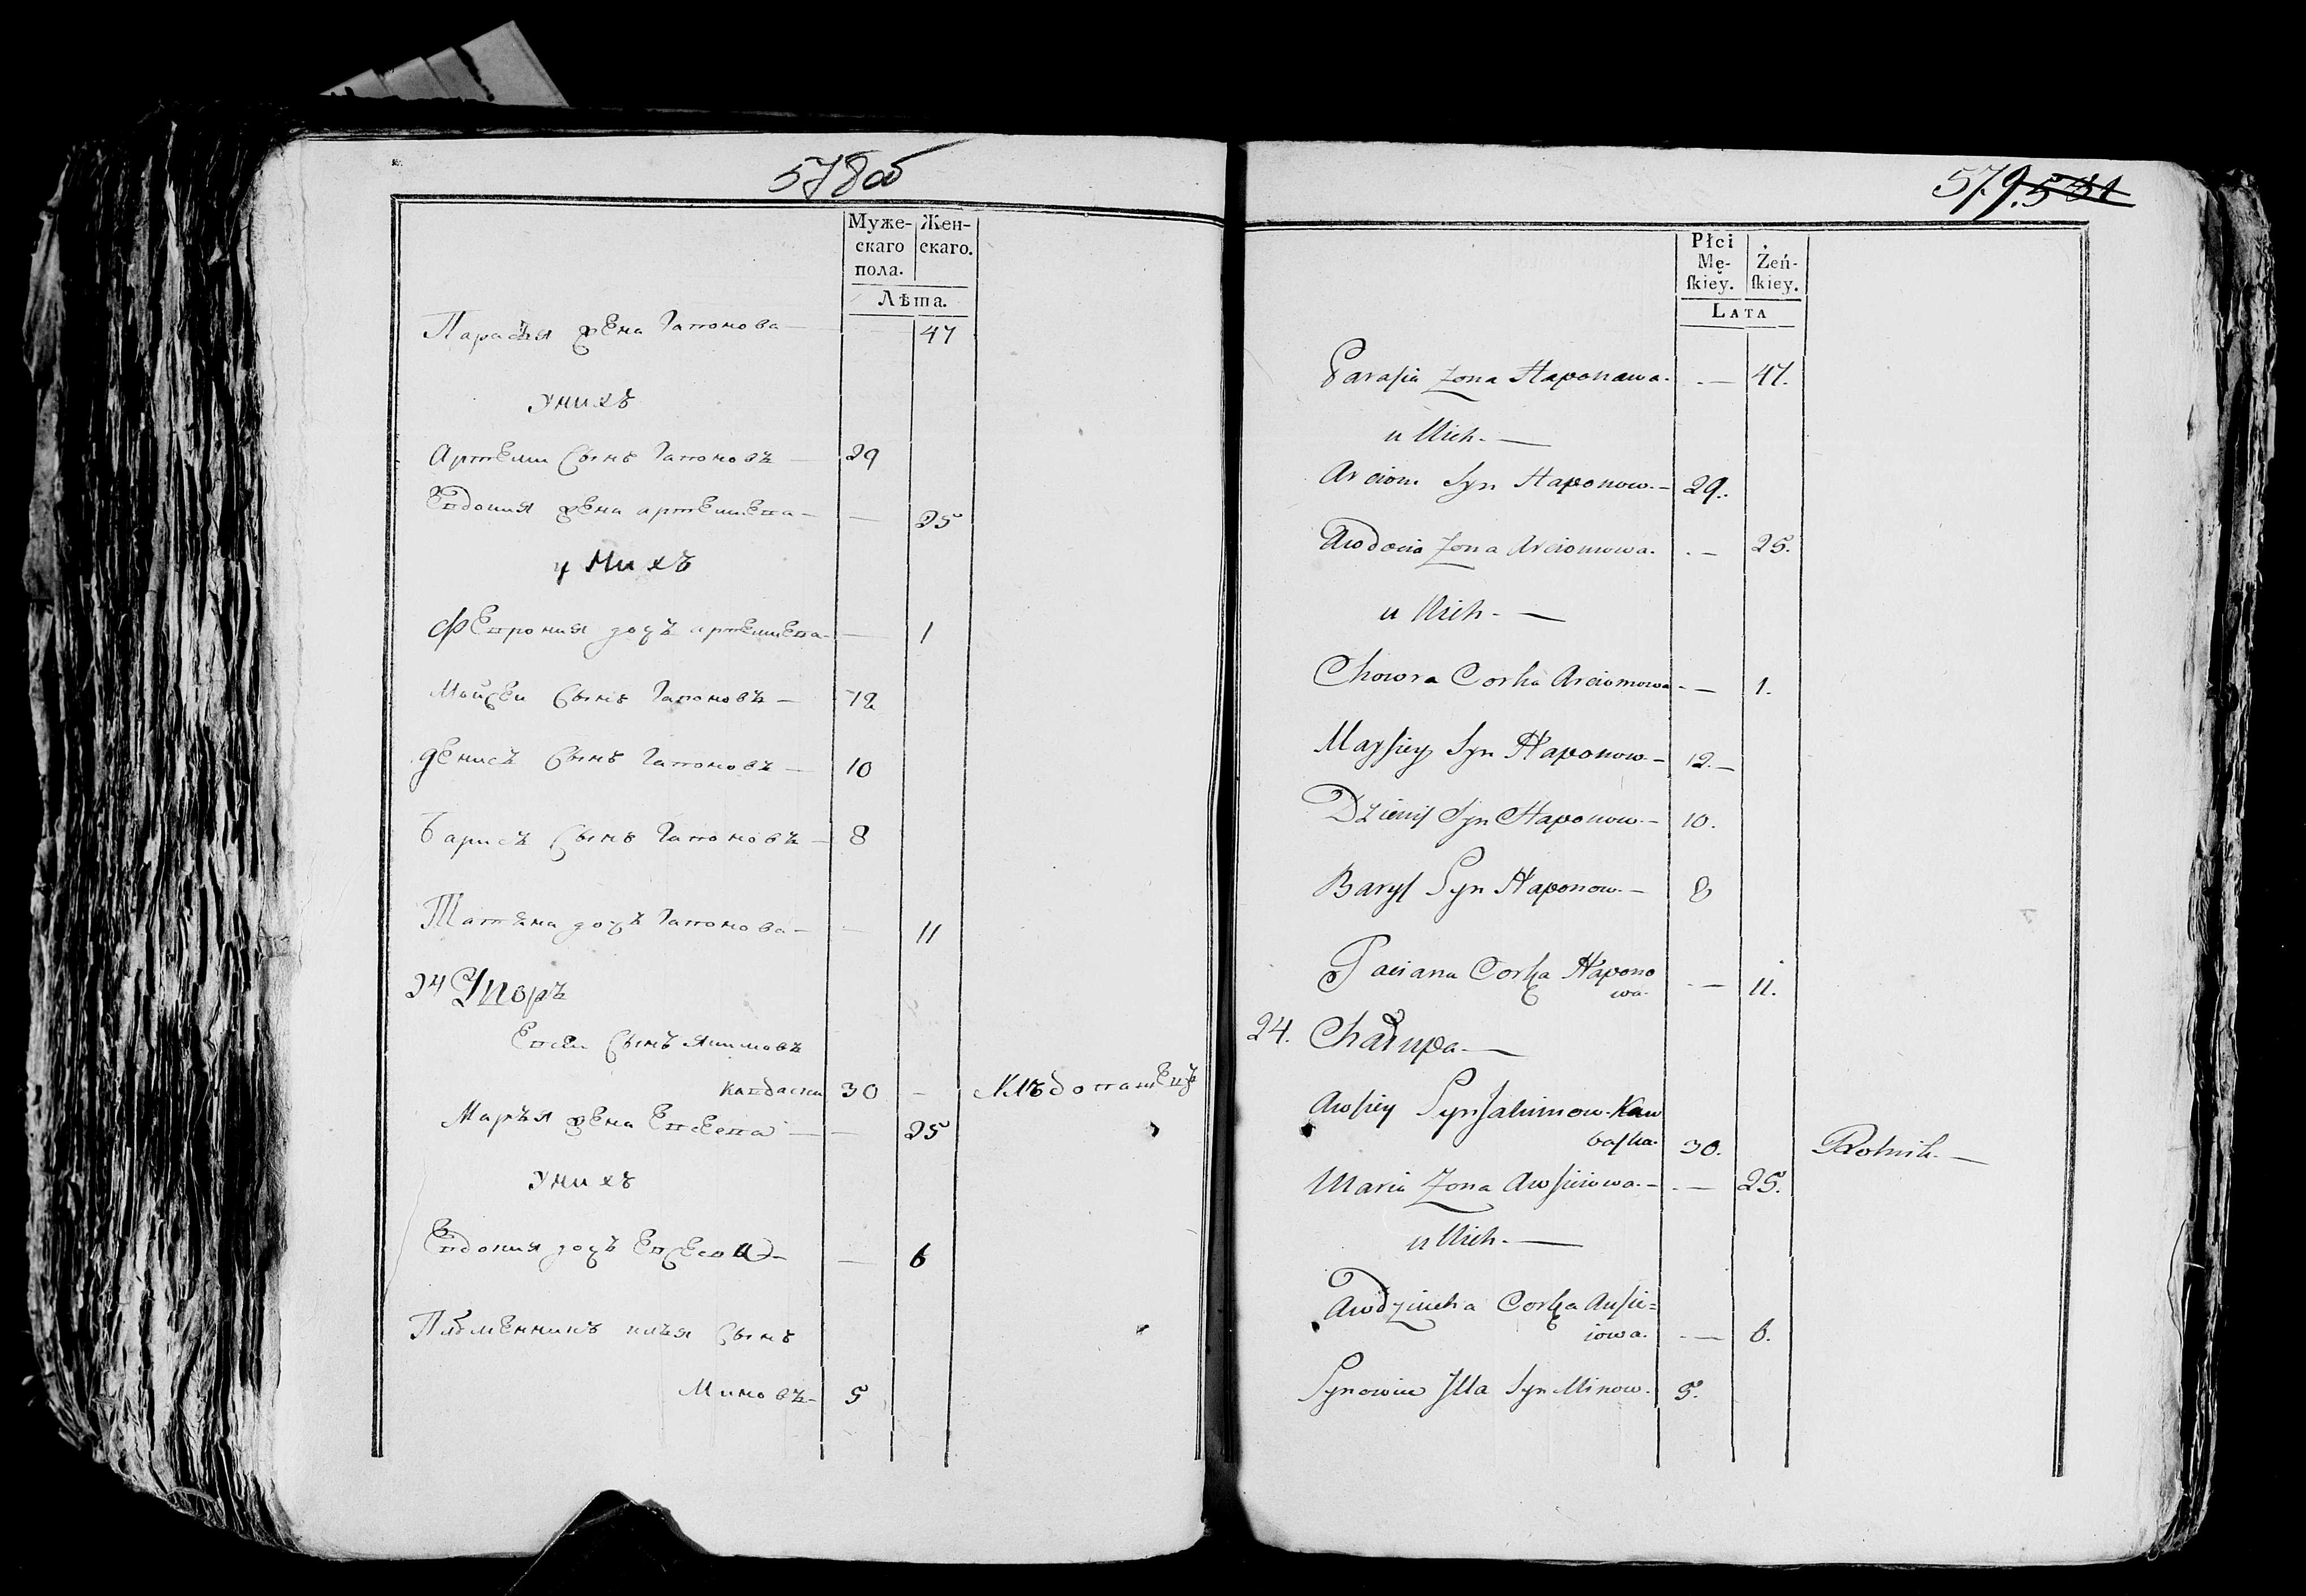 578об
Муже- Жен-
скаго скаго.
пола.
Лѣта.
Парасья жена Гапонова — 47
У нихъ
Артеми сынъ Гапоновъ — 29
Евдокия жена артемиева — — 25
у нихъ
Феврония дочь артемиева — — 1
Мойсеи сынъ Гапоновъ — 12
Денисъ сынъ Гапоновъ — 10
Барисъ сынъ Гапоновъ — 8
Татьяна дочь Гапонова — — 11
24 Двор
Евсеи сынъ якимовъ
30 — хлѣбопашецъ
Марья жена Евсеева — — 25
У нихъ
Евдокия дочь — 6
Племенникъ илья сынъ
Миновъ — 5
579. 581
Płci Żeń-
Mę- ſkiey.
ſkiey.
LATA
Parasia Zona Haponawa. — 47.
u Nich. —
Arciom Syn Haponow. — 29.
Awdocia Zona Arciomowa. — 25.
u Nich. —
Chowra Corka Arciomowa — 1.
Maysiey Syn Haponow — 12. —
Dzienis Syn Haponow. — 10.
Barys Syn Haponow. — 8
Taciana Corka Hapono
wa. — 11.
24. Chałupa —
Awsiey Syn Jakimow Kaw
baska. 30. Rolnik. —
Maria Zona Awsieiowa. — — 25.
u Nich. —
Awdziucha Corka Awsie=
iowa. — 6.
Synowiec Illa Syn Minow. 5.